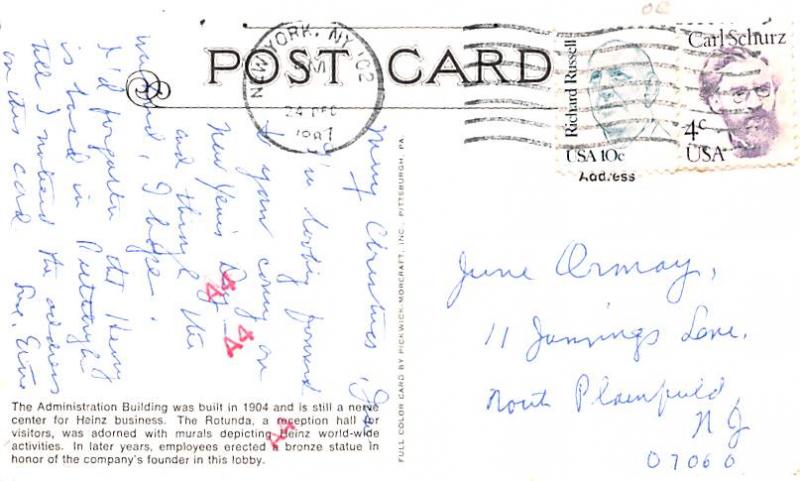 POST CARD
NEW YORK, NY 102
24 DEC
1987
Richard Russell
USA 10c
Carl Schurz
4c
USA
Address
Merry Christmas, June
I'm looking forward
to your coming on
New Year's Day -
and through the
weekend, I hope.
I'd forgotten that Henry
is based in Pittsburgh
till I noticed the address
on this card. Love,
June Ormay,
11 Jennings Lane,
North Plainfield,
NJ
07060
The Administration Building was built in 1904 and is still a nerve
center for Heinz business. The Rotunda, a reception hall for
visitors, was adorned with murals depicting Heinz world-wide
activities. In later years, employees erected a bronze statue in
honor of the company's founder in this lobby.
FULL COLOR CARD BY PICKWICK-MORCRAFT, INC., PITTSBURGH, PA.